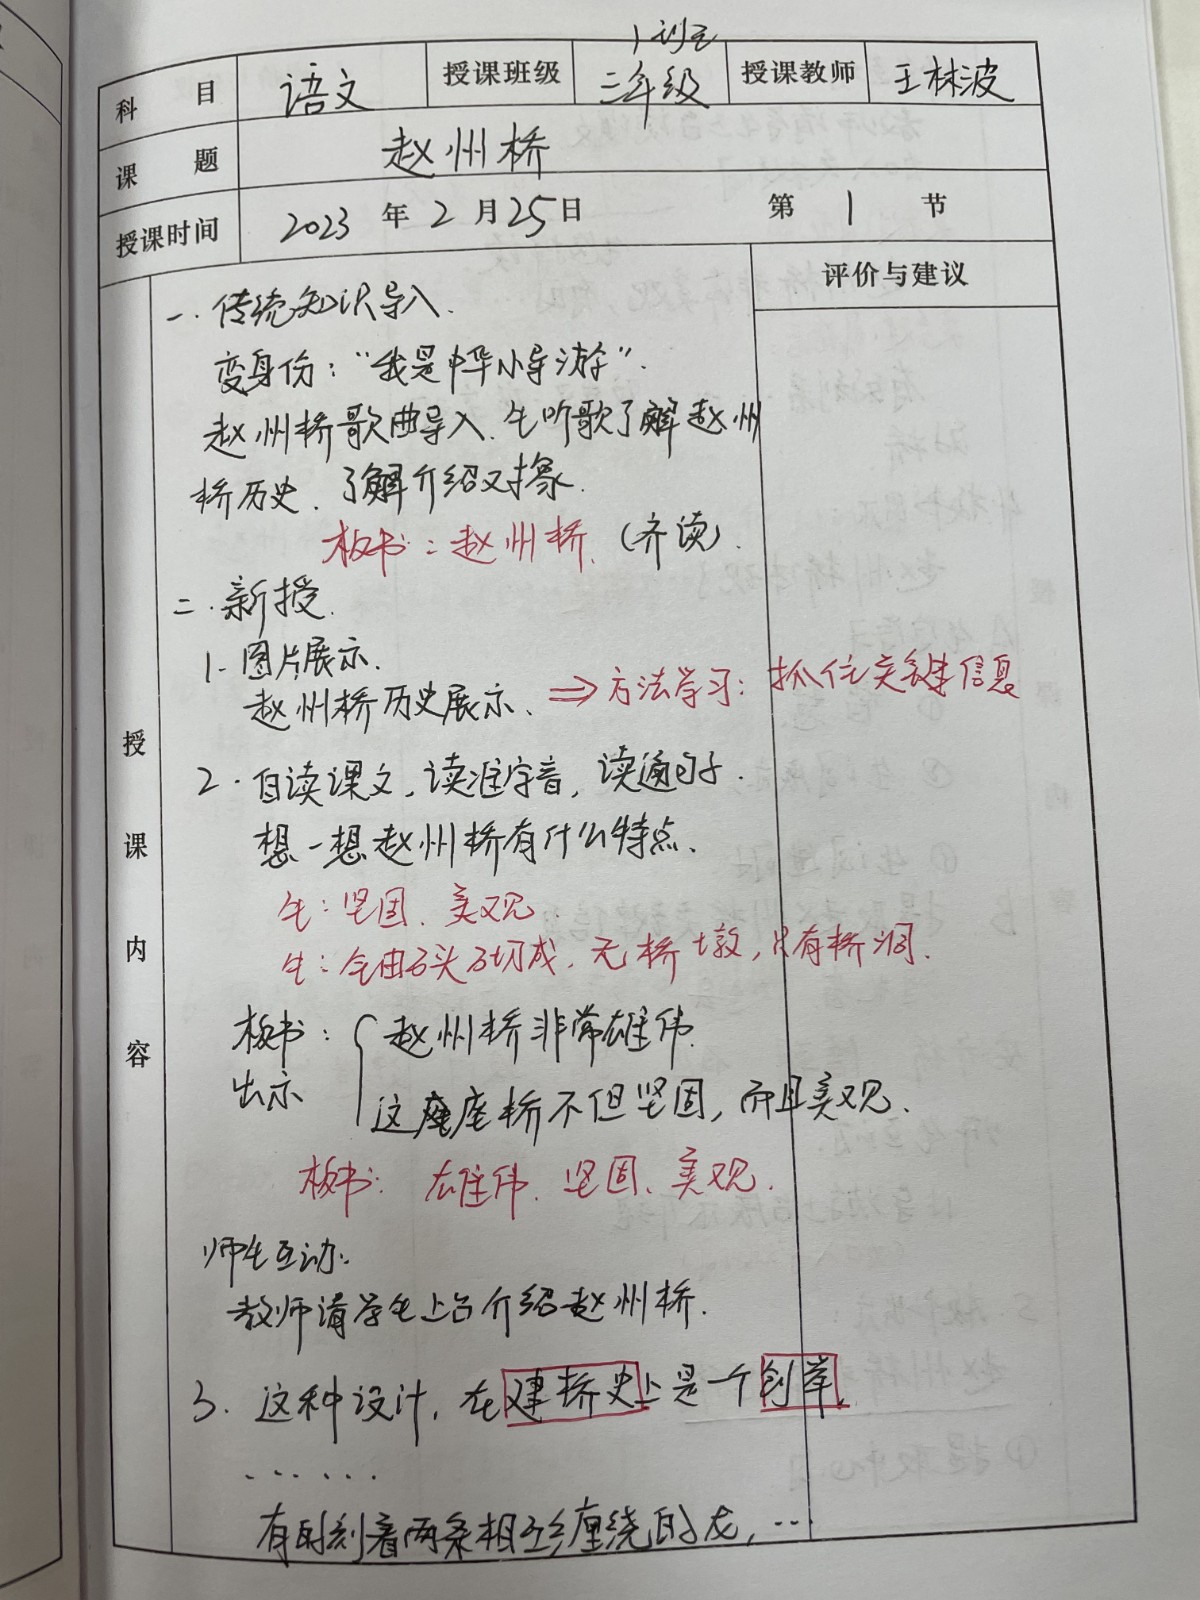 科 目 语文 授课班级 三年级 授课教师 王林波
课 题 赵州桥
授课时间 2023 年 2 月 25 日 第 1 节
授课内容
评价与建议
一. 传统知识导入.
变身份：“我是中华小导游”.
赵州桥歌曲导入. 生听歌了解赵州
桥历史. 了解介绍对象.
板书：赵州桥.（齐读）.
二. 新授.
1. 图片展示.
赵州桥历史展示. ⇒ 方法学习：抓住关键信息
2. 自读课文，读准字音，读通句子.
想一想赵州桥有什么特点.
生：坚固、美观.
生：全由石头砌成，无桥墩，只有桥洞.
板书： 赵州桥非常雄伟.
出示 这座桥不但坚固，而且美观.
板书： 雄伟、坚固、美观.
师生互动.
教师请学生上台介绍赵州桥.
3. 这种设计，在建桥史上是一个创举，
······
有的刻着两条相互缠绕的龙，…